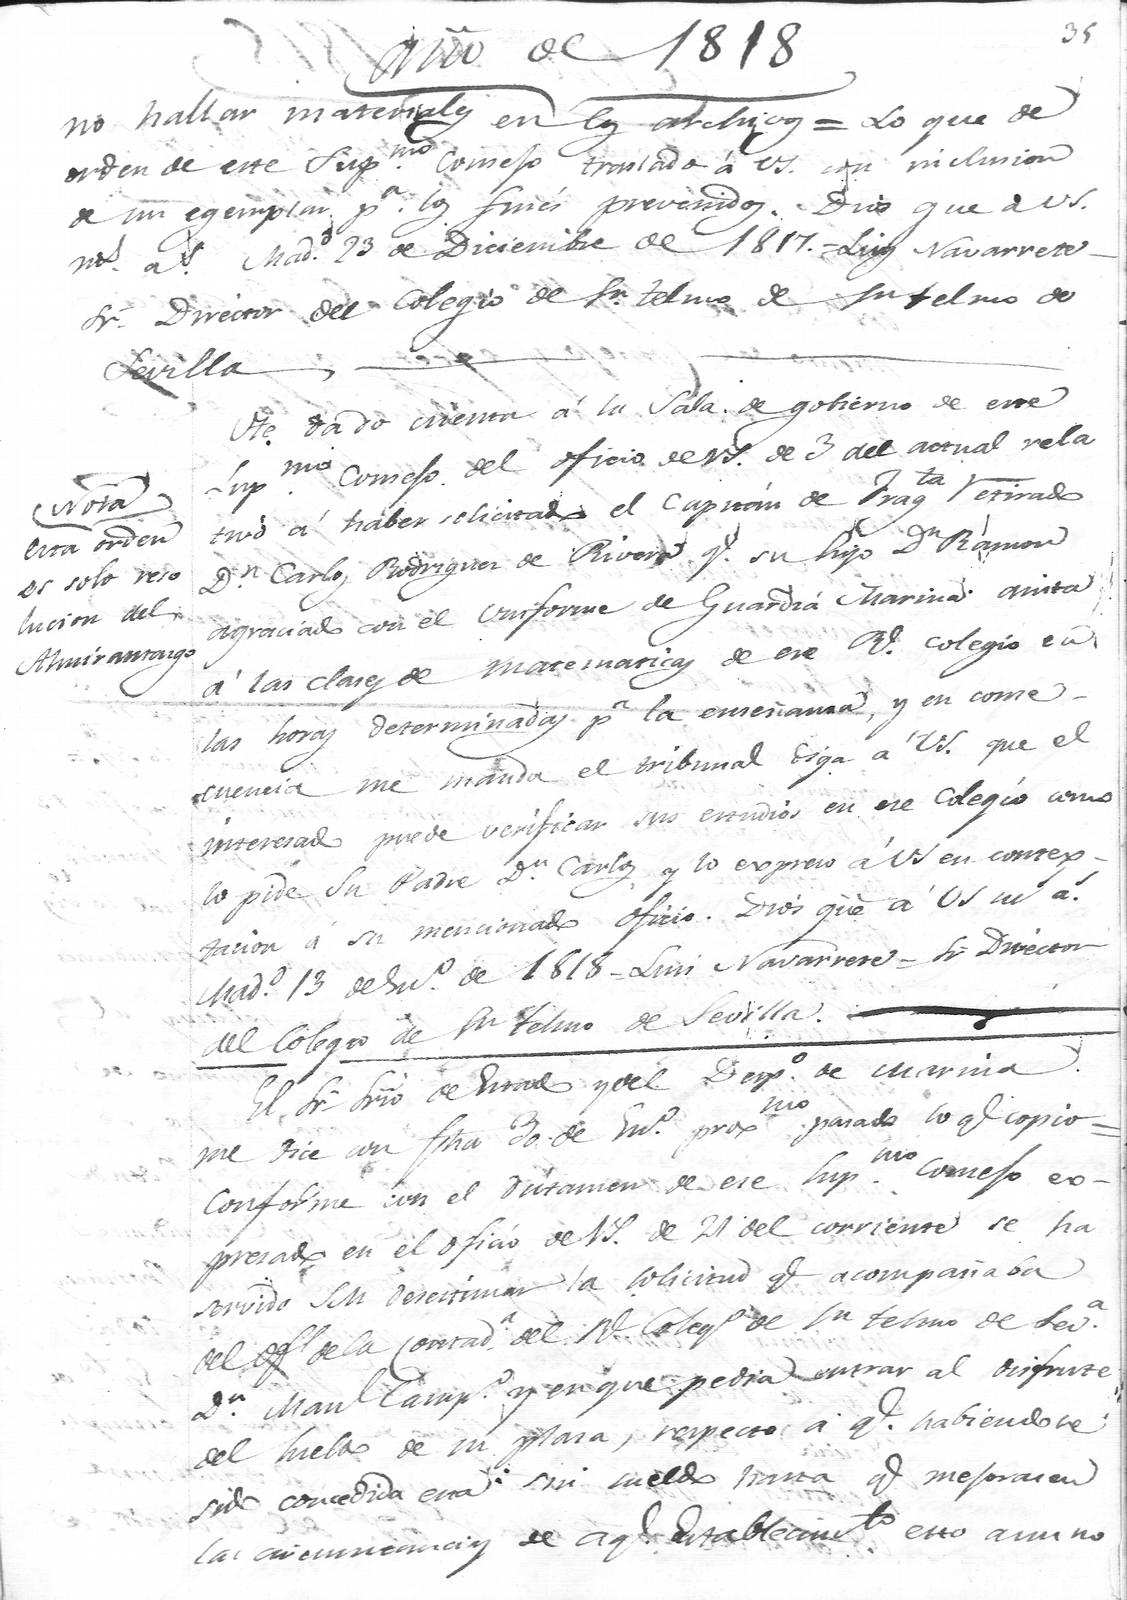 35
Año de 1818
no hallar materiales en los archivos = Lo que de
orden de este Sup.mo Consejo traslado á VS. con inclusion
de un egemplar p.a los fines prevenidos. Dios gue a VS.
ms. a.s Mad.d 23 de Diciembre de 1817. = Luis Navarrete =
Sr. Director del Colegio de Sn. telmo de Sn telmo de
Sevilla
He dado cuenta á la Sala de gobierno de este
Sup.mo Consejo del oficio de VS. de 3 del actual rela
tivo á haber solicitado el Capitan de Frag.ta retirado
Dn Carlos Rodriguez de Rivera q.e su hijo Dn Ramon
agraciado con el Uniforme de Guardia Marina asista
á las clases de matematicas de ese Rl. colegio en
las horas determinadas p.a la enseñanza, y en conse-
cuencia me manda el tribunal diga á VS. que el
interesado puede verificar sus estudios en ese Colegio como
lo pide su Padre Dn. Carlos y lo expreso á VS en contex-
tacion á su mencionado oficio. Dios gue á VS ms a.s
Mad.d 13 de En.o de 1818 = Luis Navarrete = Sr Director
del Colegio de Sn telmo de Sevilla.
Nota
Esta orden
es solo reso
lucion del
Almirantazgo
El Sr Srio de Estado y del Desp.o de Marina
me dice con fha 30 de En.o prox.mo pasado lo q.e copio =
Conforme con el dictamen de ese Sup.mo Consejo ex-
presado en el oficio de VS. de 21 del corriente se ha
servido SM desestimar la solicitud q.e acompañaba
del Ofl de la Contad.a del Rl. Coleg.o de Sn telmo de Sev.a
Dn. Manl Camp.o y en que pedia entrar al disfrute
del sueldo de su plaza, respecto a q.e habiendose
sido concedida esta sin sueldo hasta q.e mejorasen
las circunstancias de aql. Establecim.to esto aun no